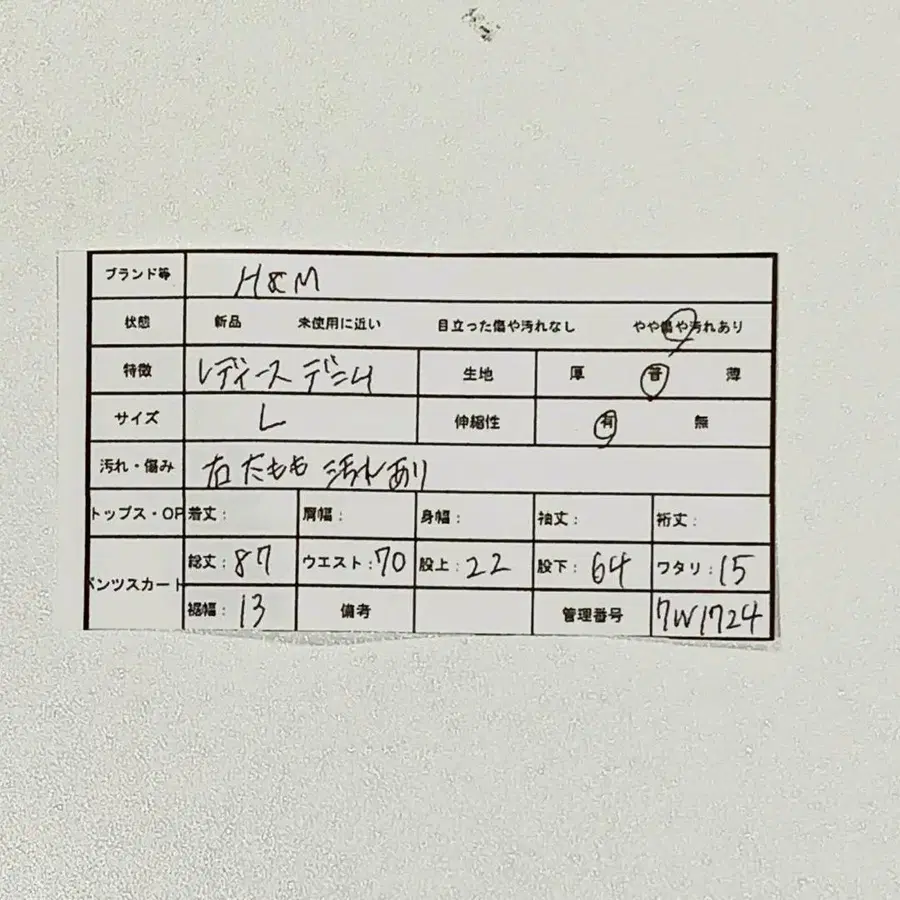 ブランド等 H&M
状態 新品 未使用に近い 目立った傷や汚れなし やや傷や汚れあり
特徴 レディース デニム 生地 厚 普 薄
サイズ L 伸縮性 有 無
汚れ・傷み 右太もも 汚れあり
トップス・OP 着丈: 肩幅: 身幅: 袖丈: 裄丈:
パンツスカート 総丈:87 ウエスト:70 股上:22 股下:64 ワタリ:15
裾幅:13 備考 管理番号 7W1724